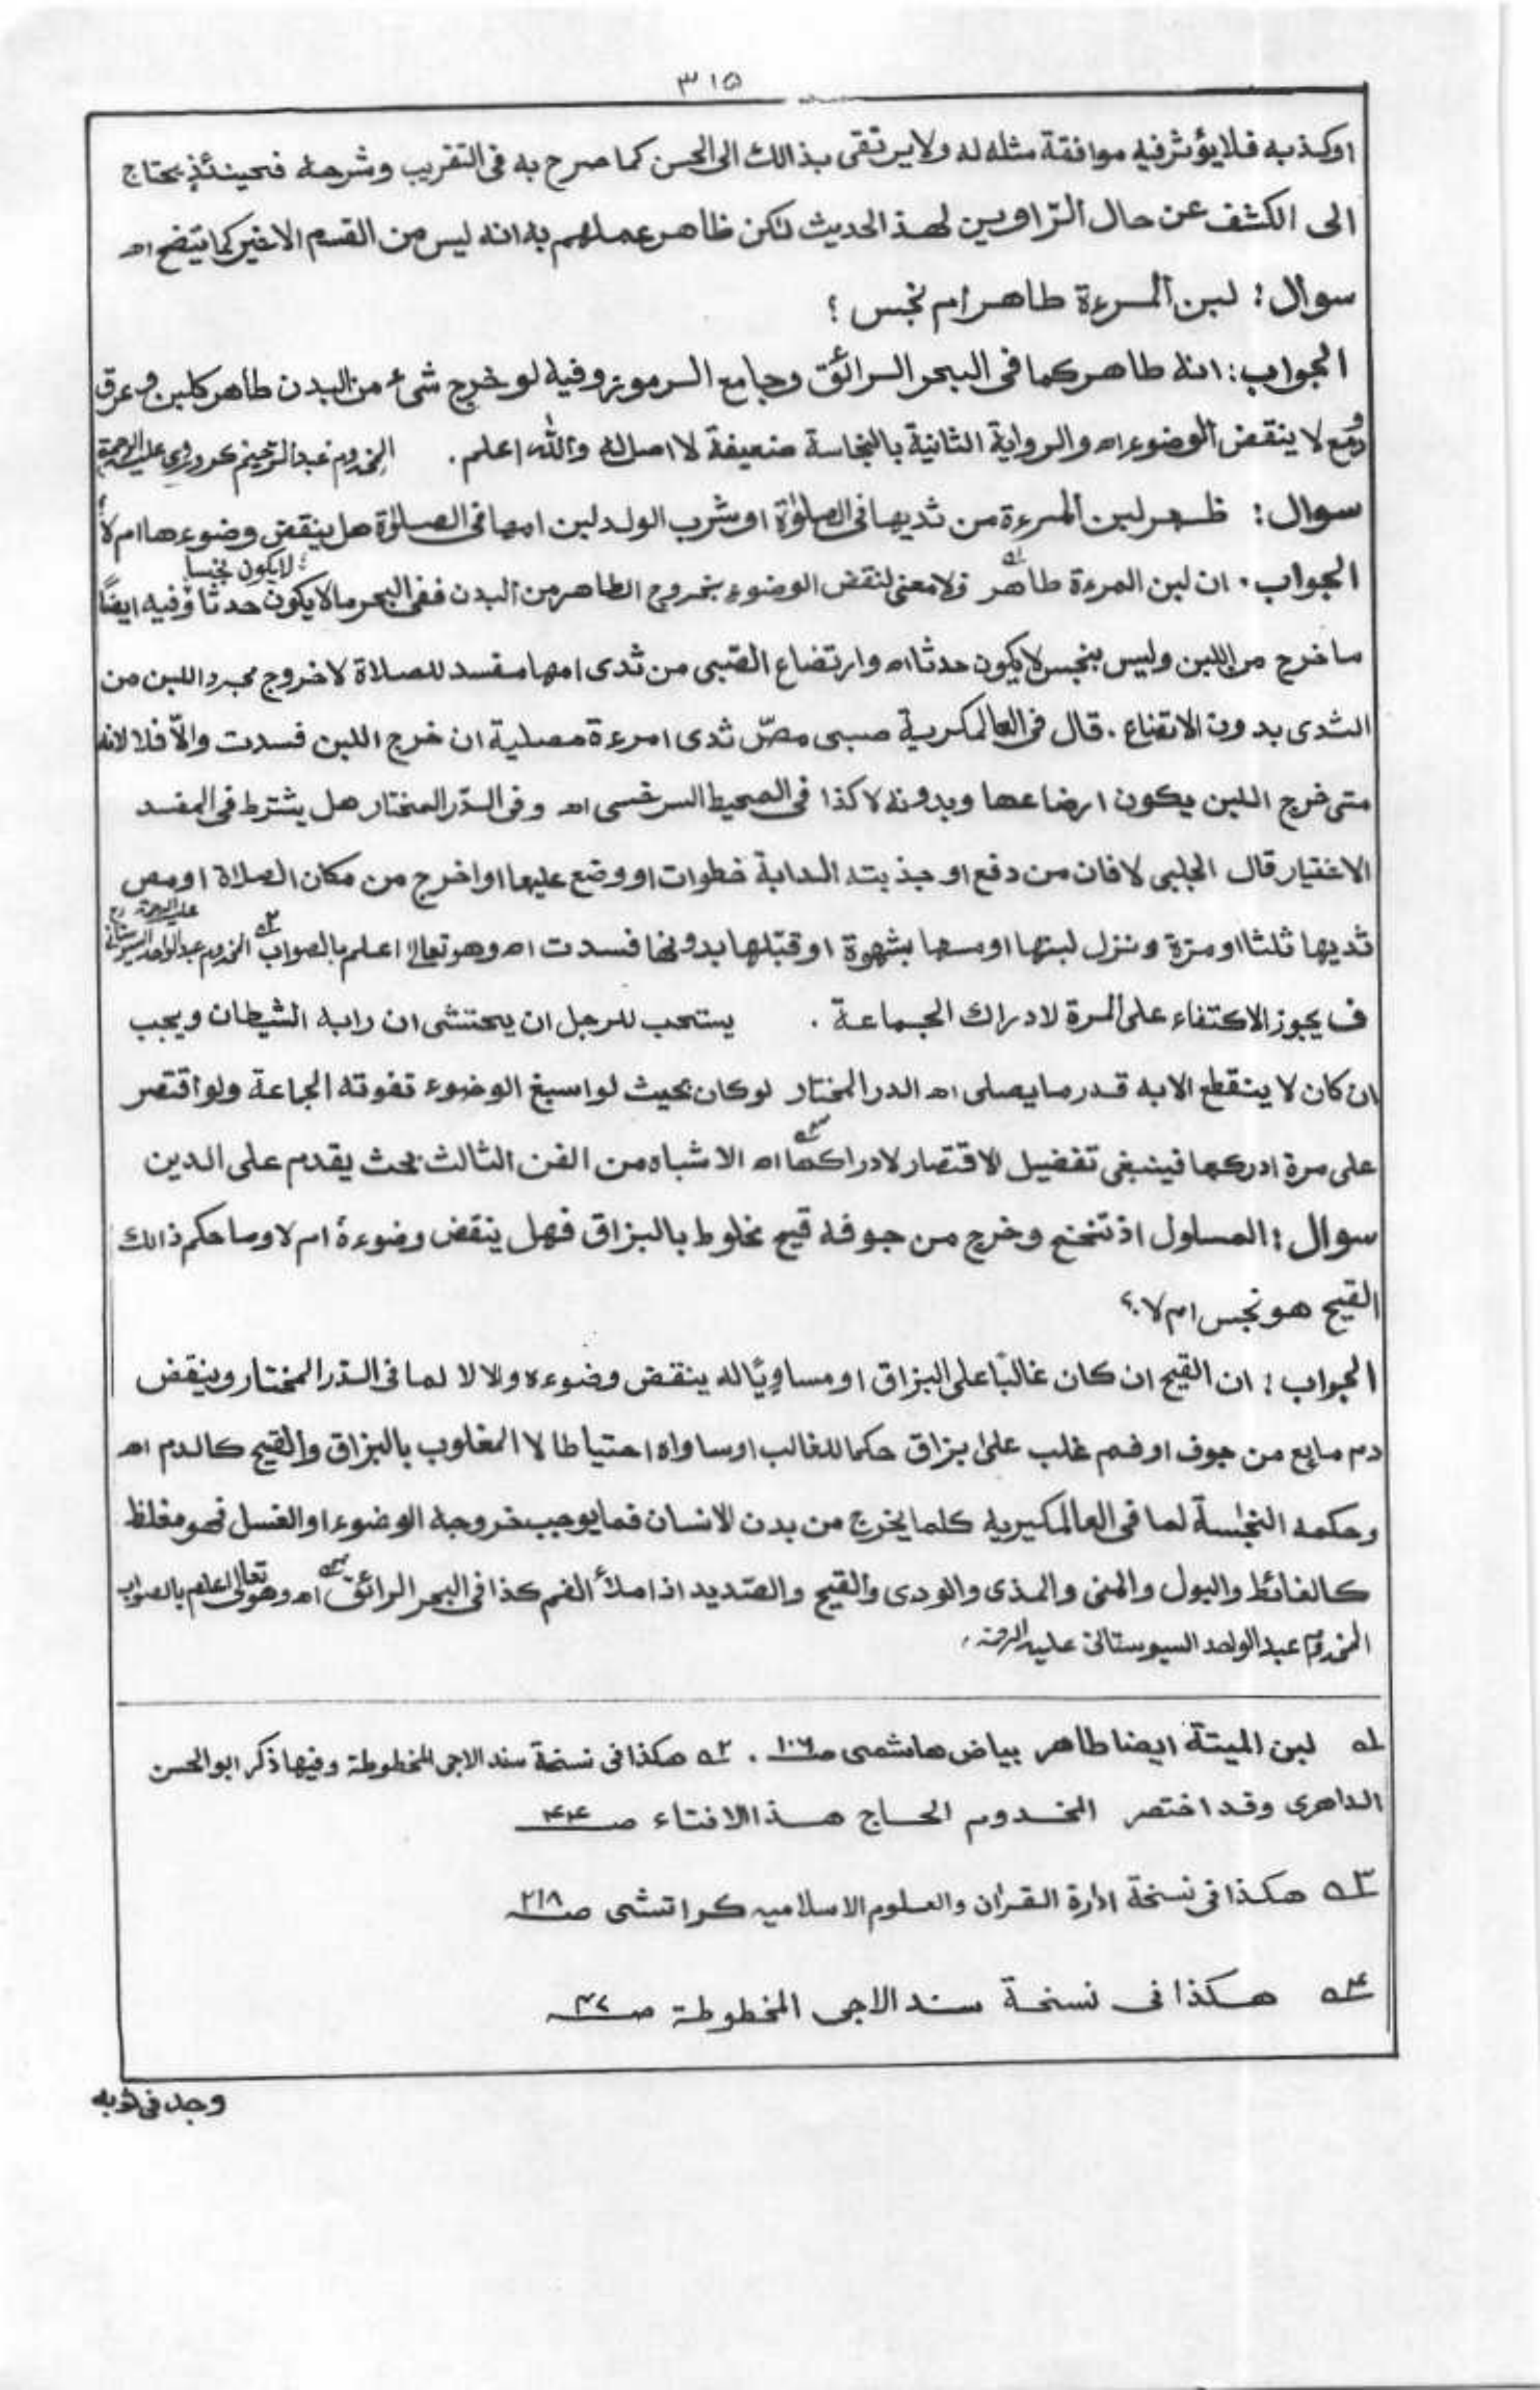 ٣١٥
اوكذبه فلايؤثرفيه موافقة مثله له ولايرتقى بذالك الى الحسن كما صرح به فى التقريب وشرحه فحينئذ يحتاج
الى الكشف عن حال الرّاويين لهذ الحديث لكن ظاهر عملهم به انه ليس من القسم الاخير كما يتضح اه
سوال : لبن المرءة طاهر ام نجس ؟
الجواب: انه طاهر كما فى البحر الرائق وجامع الرموز وفيه لو خرج شىء من البدن طاهر كلبن وعرق
ودمع لا ينقض الوضوء اه والرواية الثانية بالنجاسة ضعيفة لا اصل له والله اعلم . المخدوم عبد الرحيم كروروى عليه الرحمة
سوال : ظهر لبن المرءة من ثديها فى الصلوٰة او شرب الولد لبن امها فى الصلوٰة هل ينقض وضوءها ام لا؟
الجواب . ان لبن المرءة طاهر ١ه ولامعنى لنقض الوضوء بخروج الطاهر من البدن ففى البحر مالايكون حدثا لايكون نجسا وفيه ايضًا
ما خرج من اللبن وليس بنجس لايكون حدثا اه وارتضاع الصّبى من ثدى امها مفسد للصلاة لا خروج مجرد اللبن من
الثدى بدون الاتضاع . قال فى العالمكرية صبى مصّ ثدى امرءة مصلية ان خرج اللبن فسدت والاّ فلا لانه
متى خرج اللبن يكون ارضاعها وبدونه لا كذا فى المحيط السرخسى اه وفى الدّر المختار هل يشترط فى المفسد
الاختيار قال الحلبى لا فان من دفع او جذبته الدابة خطوات او وضع عليها او اخرج من مكان الصلاة او مص
ثديها ثلثا او مرّة ونزل لبنها او مسها بشهوة او قبّلها بدونها فسدت اه وهو تعالى اعلم بالصواب ٢ه المخدوم عبد الواحد السيوستانى عليه الرحمة
ف يجوز الاكتفاء على المرة لادراك الجماعة . يستحب للرجل ان يحتشى ان رابه الشيطان ويجب
ان كان لا ينقطع الابه قدر ما يصلى اه الدر المختار لو كان بحيث لو اسبغ الوضوء تفوته الجماعة ولو اقتصر
على مرة ادركها فينبغى تفضيل الاقتصار لادراكها ٣ه اه الاشباه من الفن الثالث بحث يقدم على الدين
سوال : المسلول اذ تنخنع وخرج من جوفه قيح مخلوط بالبزاق فهل ينقض وضوءهٗ ام لا وما حكم ذالك
القيح هو نجس ام لا ؟
الجواب : ان القيح ان كان غالبًا على البزاق او مساويًا له ينقض وضوءه والا لا لما فى الدّر المختار وينقض
دم مايع من جوف او فم غلب علىٰ بزاق حكما للغالب او ساواه احتياطا لا المغلوب بالبزاق والقيح كالدم اه
وحكمه النجاسة لما فى العالمكيريه كلما يخرج من بدن الانسان فما يوجب خروجه الوضوء او الغسل فهو مغلظ
كالغائط والبول والمنى والمذى والودى والقيح والصّديد اذ املأ الفم كذا فى البحر الرائق ٤ه اه وهو تعالى اعلم بالصواب
المخدوم عبد الواحد السيوستانى عليه الرحمة ،
١ه لبن الميتة ايضا طاهر بياض هاشمى صـ١٠٦ . ٢ه هكذا فى نسخة سند الاجى المخطوطة وفيها ذكر ابو الحسن
الداهرى وقد اختصر المخدوم الحاج هذا الافتاء صـ٤٤
٣ه هكذا فى نسخة ادارة القران والعلوم الاسلاميه كراتشى صـ٢١٨
٤ه هكذا فى نسخة سند الاجى المخطوطة صـ٤٢
وجد فى ثوبه